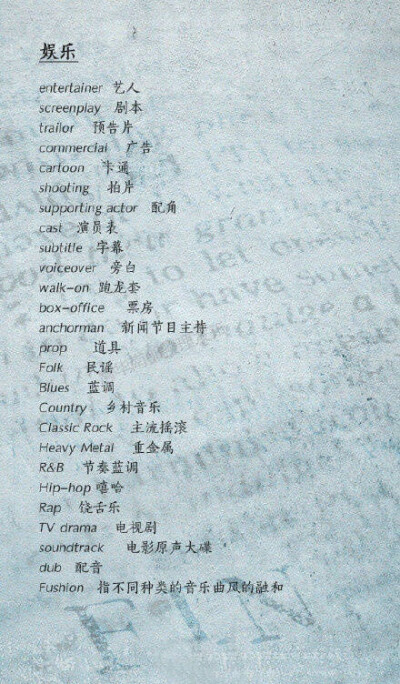 娱乐
entertainer 艺人
screenplay 剧本
trailor 预告片
commercial 广告
cartoon 卡通
shooting 拍片
supporting actor 配角
cast 演员表
subtitle 字幕
voiceover 旁白
walk-on 跑龙套
box-office 票房
anchorman 新闻节目主持
prop 道具
Folk 民谣
Blues 蓝调
Country 乡村音乐
Classic Rock 主流摇滚
Heavy Metal 重金属
R&B 节奏蓝调
Hip-hop 嘻哈
Rap 饶舌乐
TV drama 电视剧
soundtrack 电影原声大碟
dub 配音
Fushion 指不同种类的音乐曲风的融和
FIN